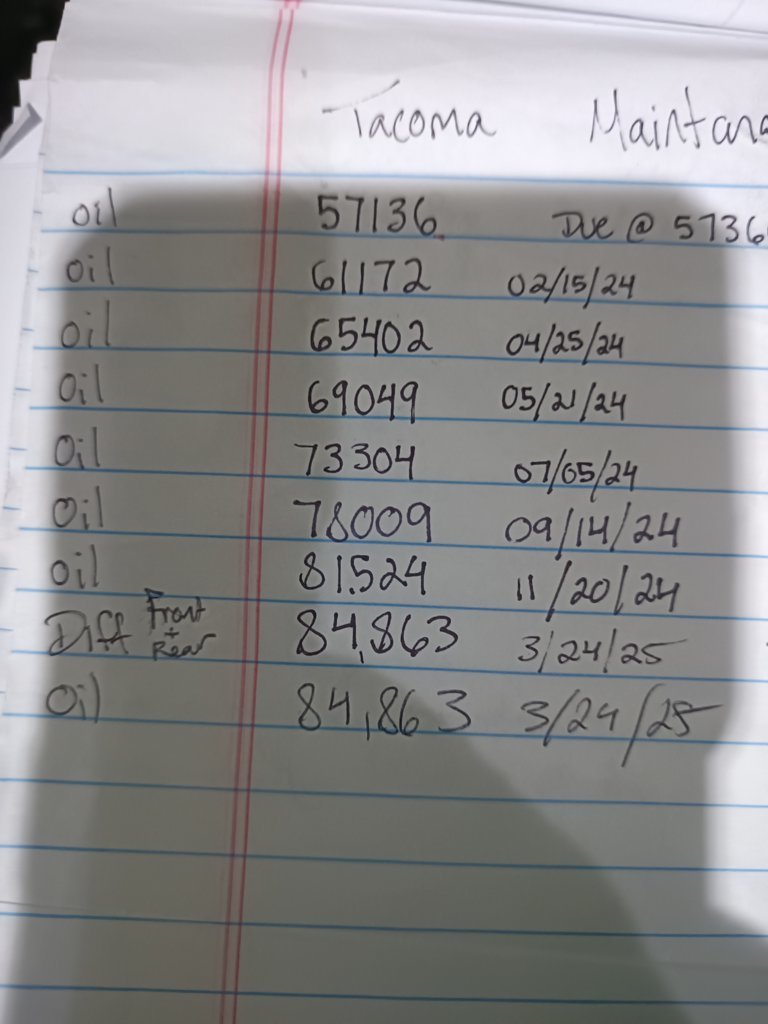 Tacoma Maintana
oil 57136 Due @ 5736
oil 61172 02/15/24
oil 65402 04/25/24
oil 69049 05/21/24
oil 73304 07/05/24
oil 78009 09/14/24
oil 81524 11/20/24
Diff Front + Rear 84,863 3/24/25
Oil 84,863 3/24/25